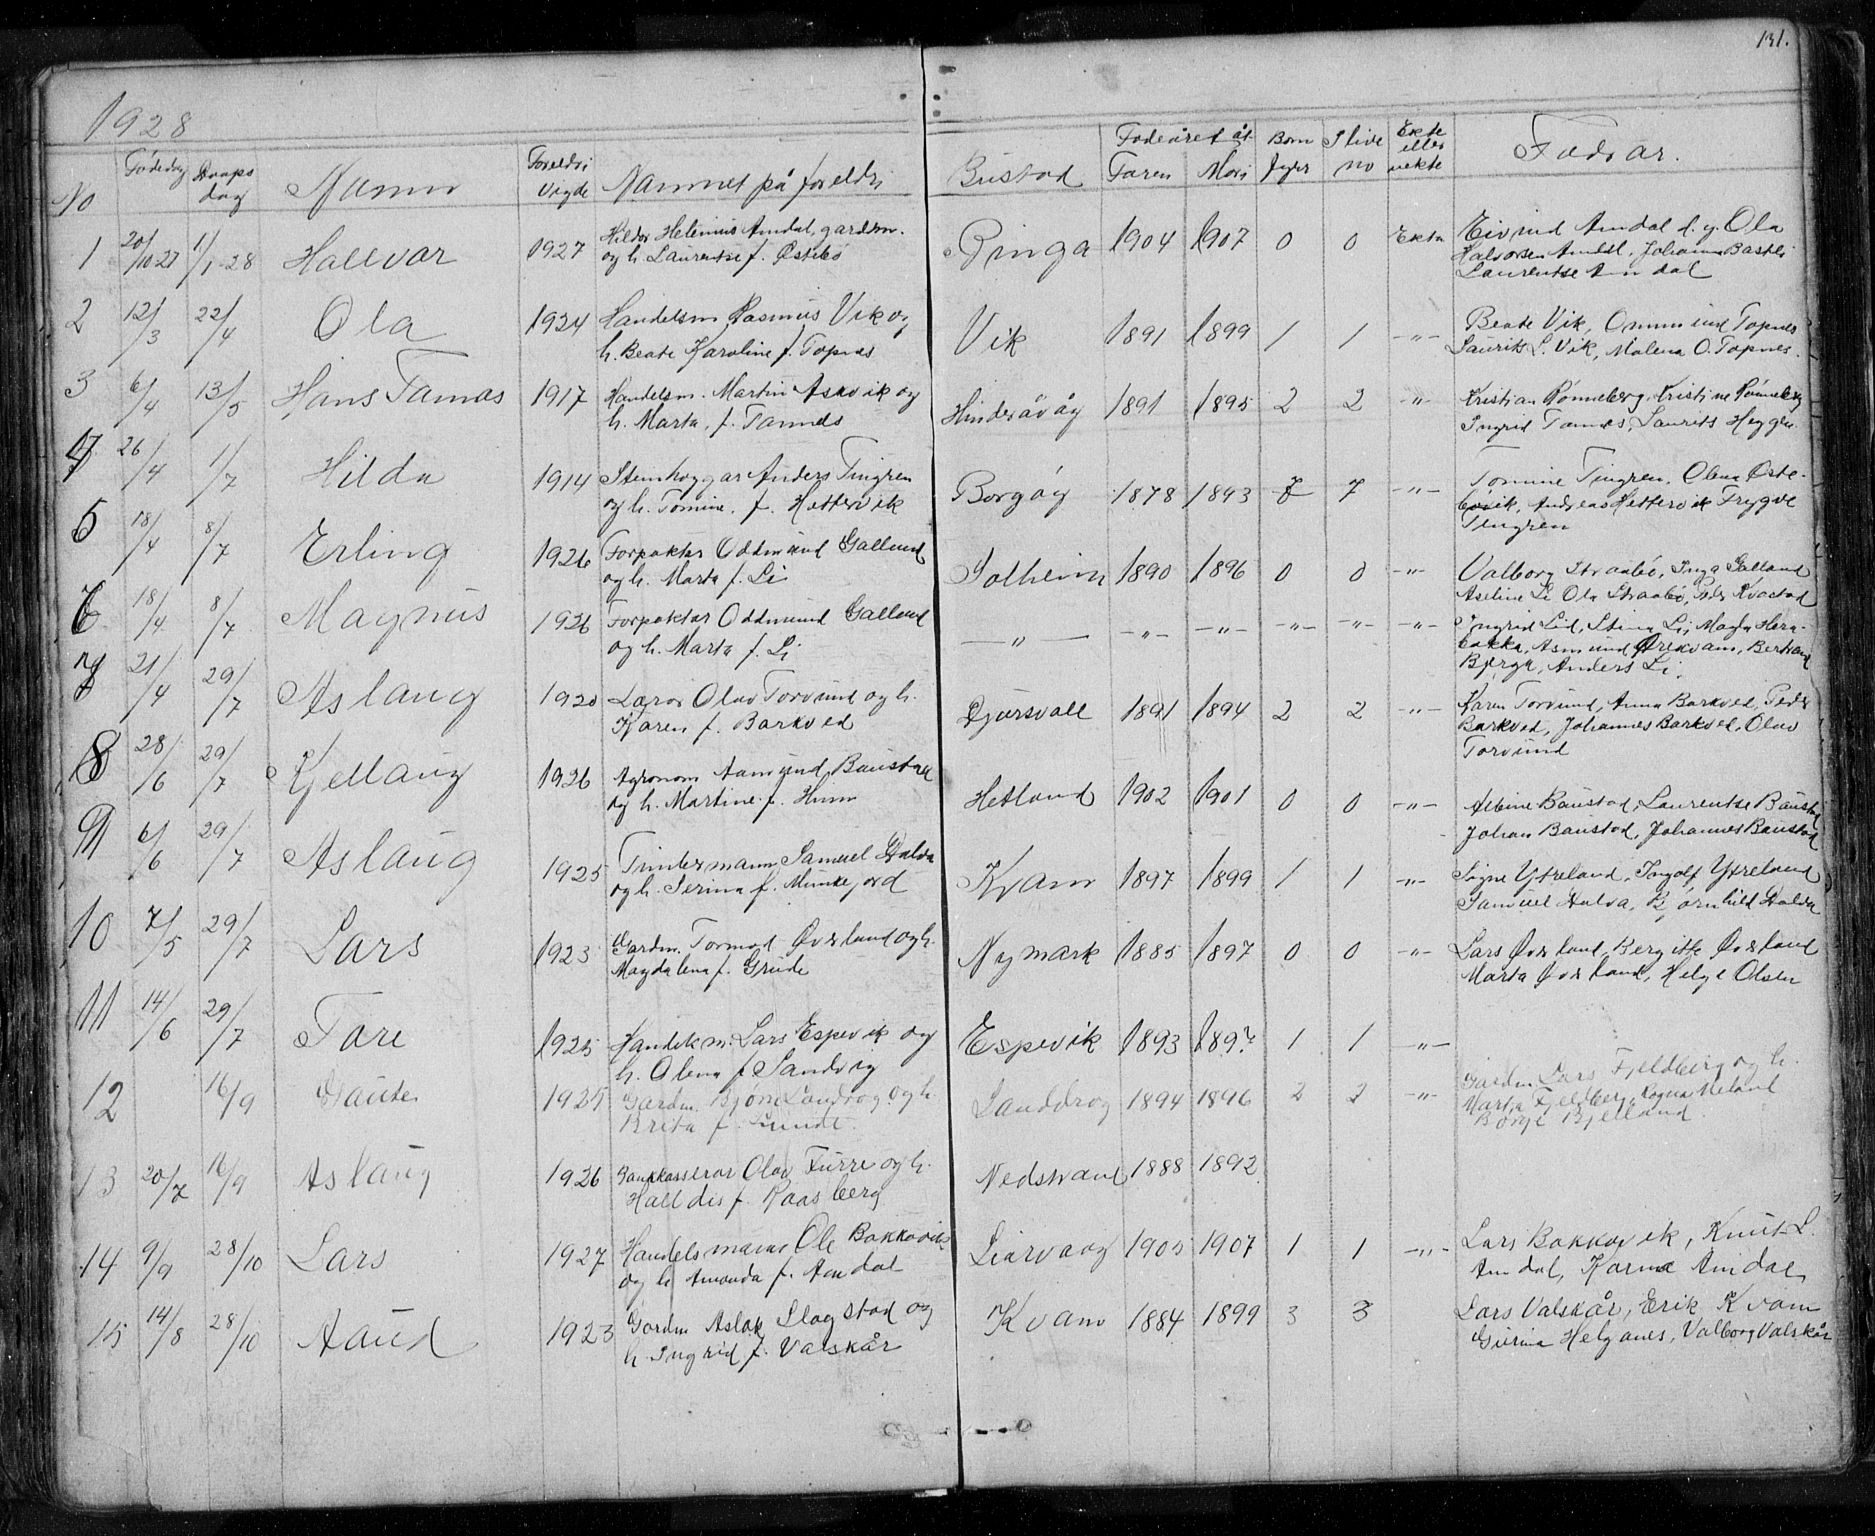 131.
1928
No Fødedag Daaps dag Namn Foreldri Vigde Namnet på foreldri Bustad Fødeåret åt Faren Mori Born fyrr I live no Ekte eller uekte Fadrar.
1 20/10-27 1/1-28 Hallvar 1927 Hildor Helenius Amdal, gardm. Ringa 1904 1907 0 0 Ekte Eivind Amdal d.y. Ola
og h. Laurentse f. Østebø Halvorsen Amdal, Johanna
Laurentse Amdal
2 12/3 22/4 Ola 1924 Handelsm Rasmus Vik og Vik 1891 1899 1 1 -"- Beate Vik, Ommund Topnes
h. Beate Karoline f. Topnes Laurits L. Vik, Malena O. Topnes.
3 6/4 13/5 Hans Tamas 1917 Handelsm. Martin Askvik og Hinderåvåg 1891 1895 2 2 -"- Kristian Rønneberg, Kristine Rønneberg
h. Marta, f. Tamnes Ingrid Tamnes, Laurits
4 26/4 1/7 Hilda 1914 Steinhoggar Anders Tingren Borgøy 1878 1893 7 -"- Tomine Tingren, Olena Øste-
og h. Tomine, f. Hettervik bøvik, Andreas Hettervik Trygve
Tingren
5 18/4 8/7 Erling 1926 Forpaktar Oddmund Galland Solheim 1890 1896 0 0 -"- Valborg Straabø, Inga Galland
og h. Marta f. Li Aseline Li Ola Straabø, Kvastad
6 18/4 8/7 Magnus 1926 Forpaktar Oddmund Galland -"- -"- -"- -"- -"- -"- Ingrid Lid, Stina Li,
og h. Marta f. Li
Anders Li.
7 21/4 29/7 Aslaug 1920 Lærar Olav Torvund og h. Djursvoll 1891 1894 2 2 -"- Karen Torvund, Anna Barkved, Peder
Karen f. Barkved Barkved, Johannes Barkved, Olav
Torvund
8 28/6 29/7 Kjellaug 1926 Agronom Aamund Baustad Hetland 1902 1901 0 0 -"- Albine Baustad, Laurentse Baustad
og h. Martine f. Hum Johan Baustad, Johannes Baustad
9 6/6 29/7 Aslaug 1925 Timdermann Samuel Dalva Kvam 1897 1899 1 1 -"- Signe Ytreland, Ingolf Ytreland
og h. Serina f. Munkejord Samuel Dalva, Bjørnhild Dalva
10 7/5 29/7 Lars 1923 Gardm. Tormod Øverland og h. Nymark 1885 1897 0 0 -"- Lars Øverland, Bergitte Øverland
Magdalena f. Grude Marta Øverland, Helge Olsen
11 14/6 29/7 Tore 1925 Handelsm. Lars Espevik og Espevik 1893 189? 1 1 -"-
h. Olena f Sandvig
12 16/9 Gaute 1925 Gardm. Bjørn Landrog og h. Sanddrog 1894 1896 2 2 -"- Gardm Lars Fjeldberg og h.
Brita f. Lunde. Marta Fjeldberg, Ragna Meland
Børge Bjelland
13 20/7 16/9 Aslaug 1926 Bankkasserar Olav Furre og h. Nedstrand 1888 1892
Halldis f. Raasberg
14 9/9 28/10 Lars 1927 Handelsmann Ole Bokkavik Liarvaag 1905 1907 1 1 -"- Lars Bokkavik, Knut L.
og h Amanda f. Amdal Amdal, Karina Amdal
15 14/8 28/10 Aaud 1923 Gardm Aslak Slogstad og Kvam 1884 1899 3 3 Lars Valskår, Erik Kvam
h. Ingrid f. Valskår Gurina Helganes, Valborg Valskår